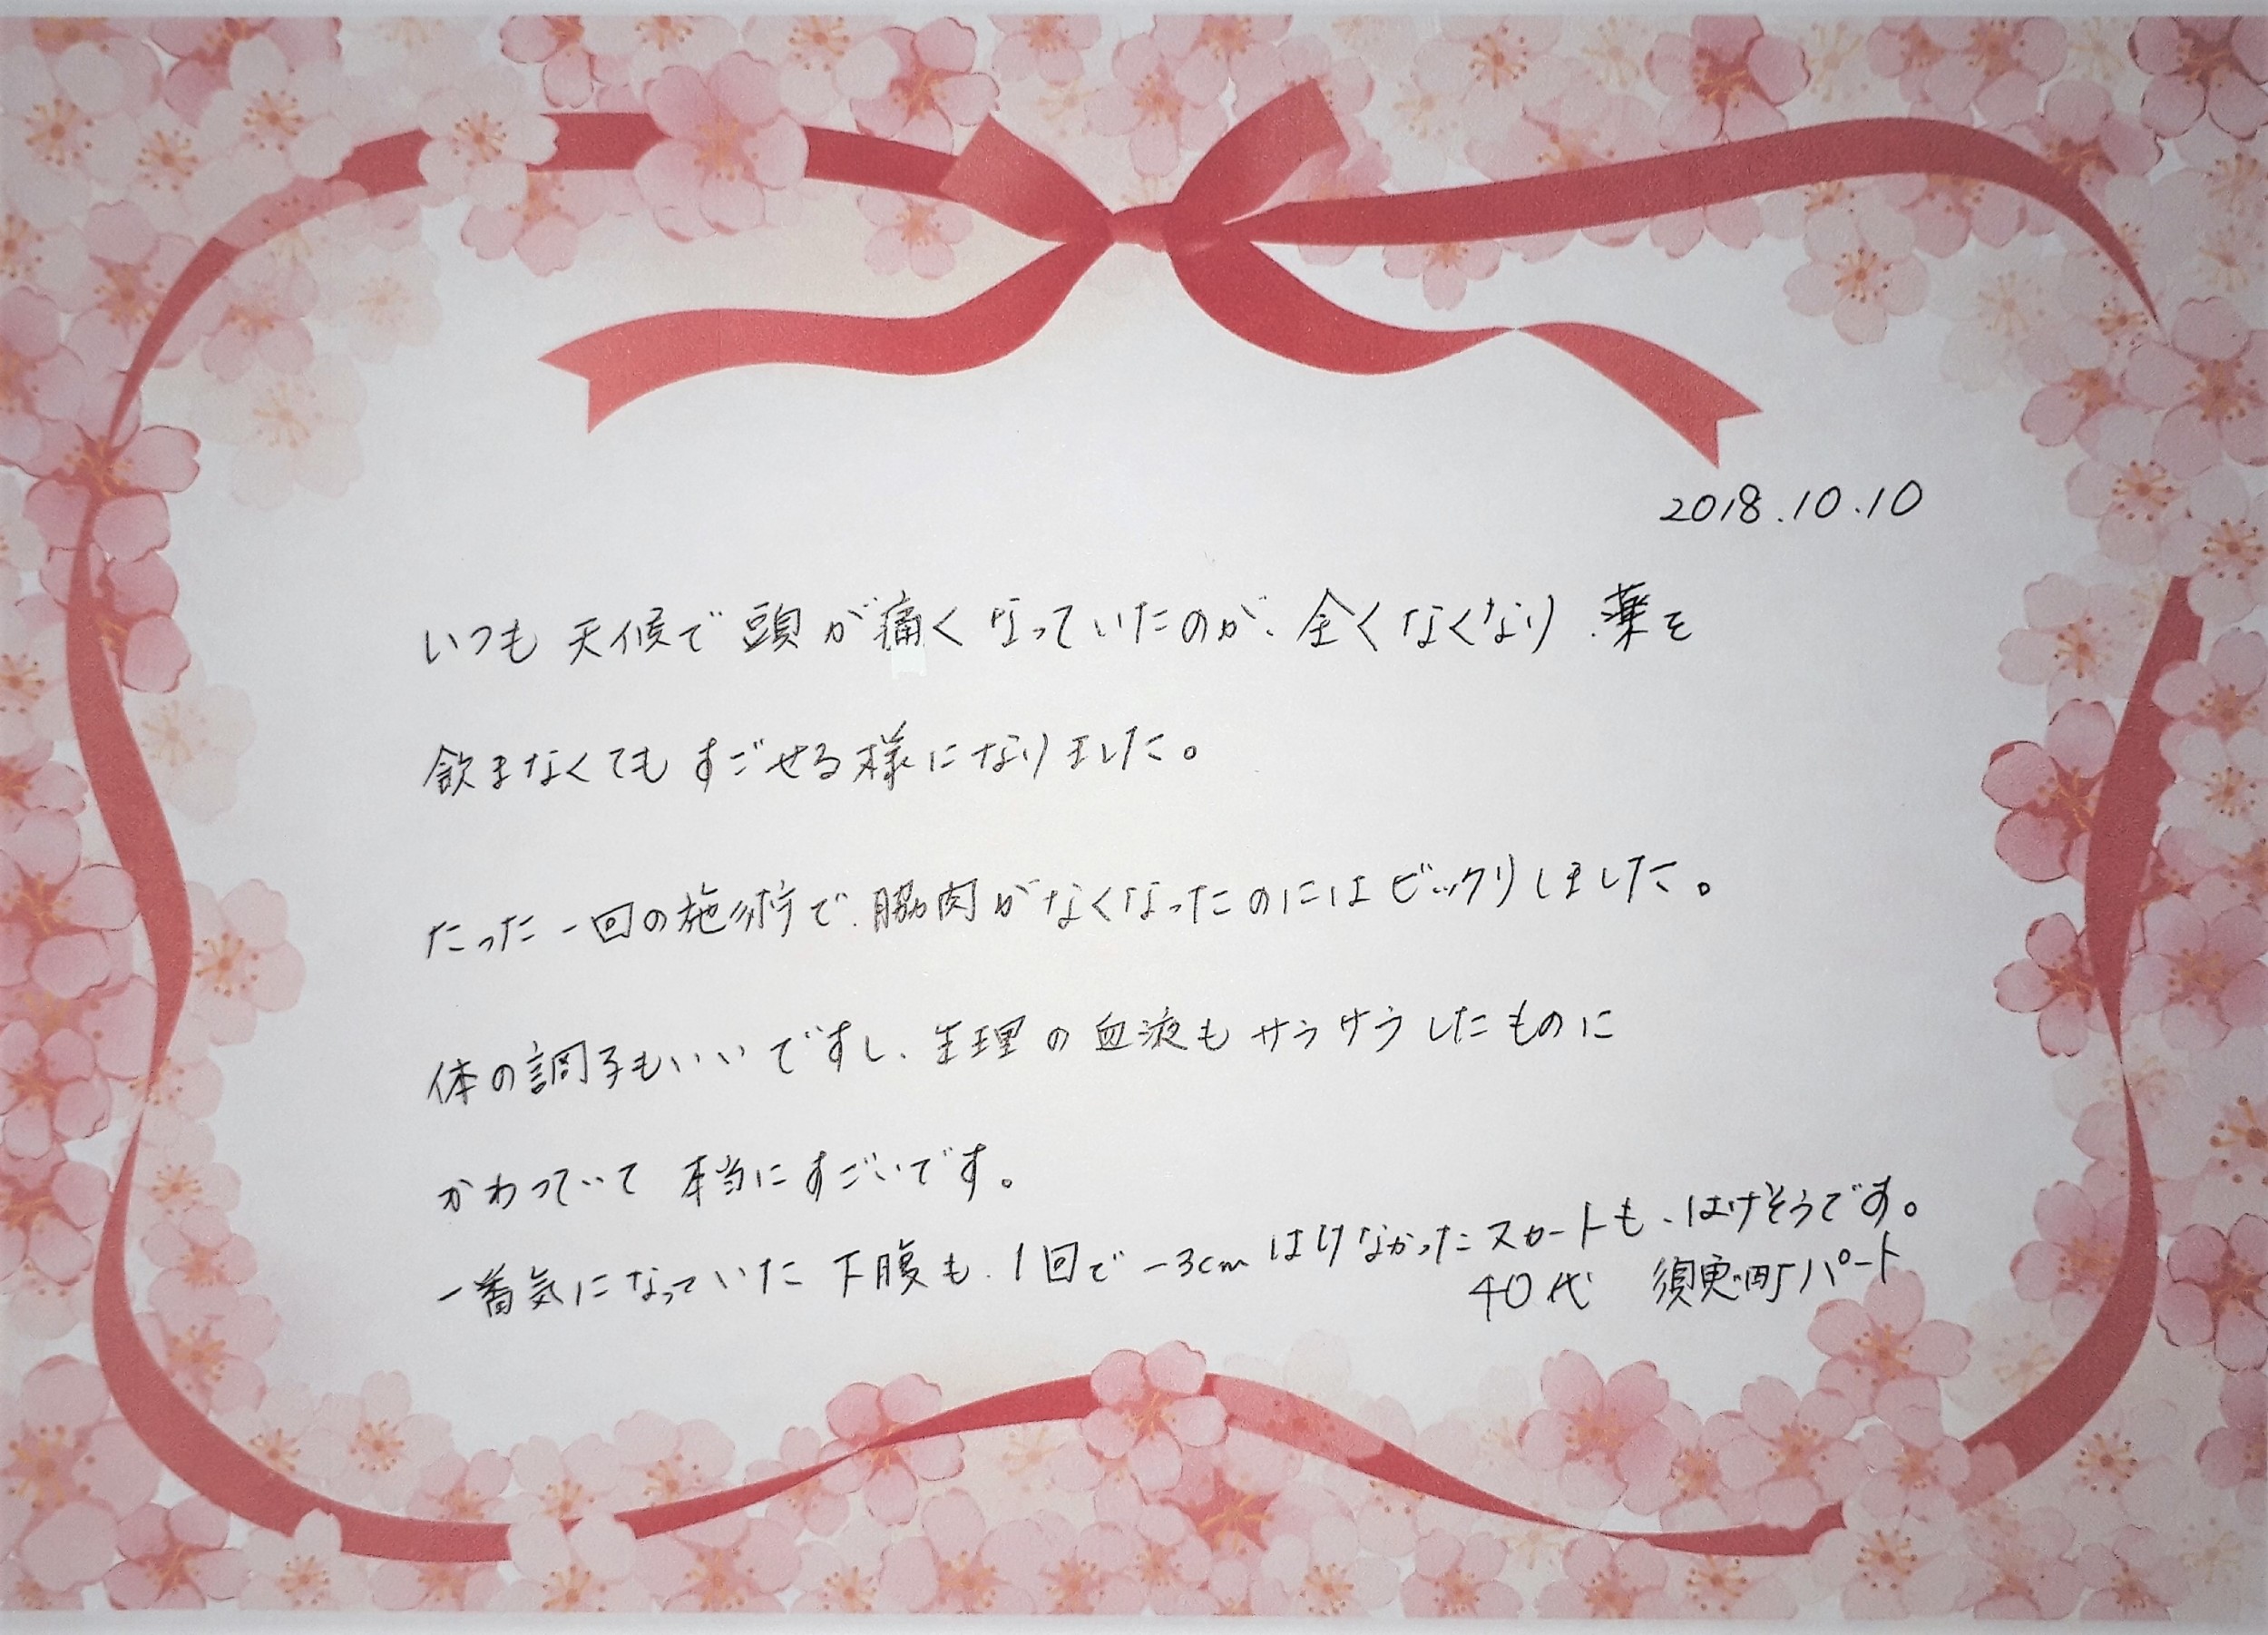 2018.10.10
いつも天候で頭が痛くなっていたのが、全くなくなり、薬を
飲まなくてもすごせる様になりました。
たった一回の施術で、脇肉がなくなったのにはビックリしました。
体の調子もいいですし、生理の血液もサラサラしたものに
かわっていて 本当にすごいです。
一番気になっていた下腹も、1回で-3cm はけなかったスカートも、はけそうです。
40代 須恵町パート